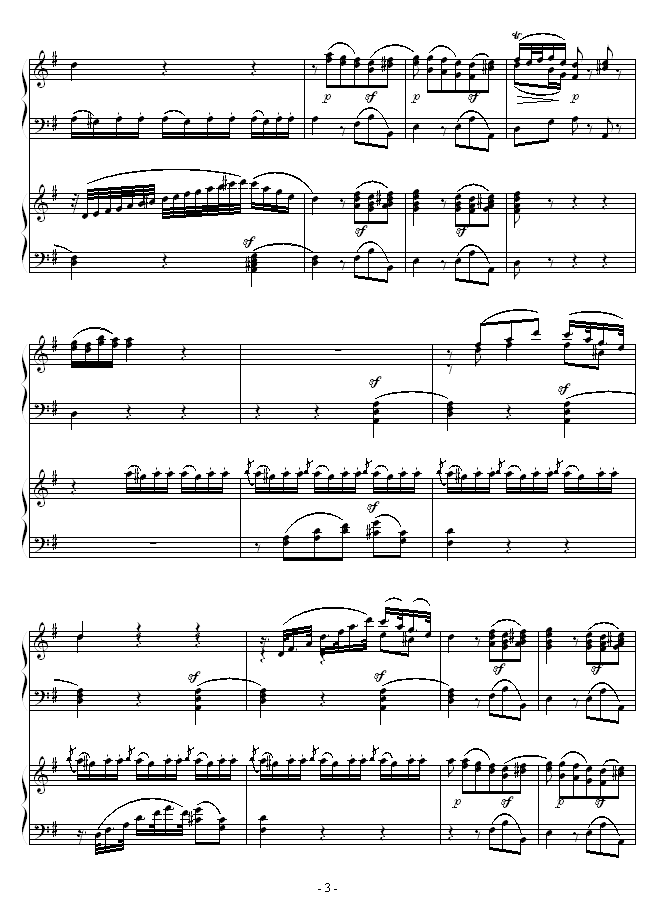 p sf p sf p
sf sf
sf
sf sf
sf
sf sf sf sf
p sf p sf
- 3 -